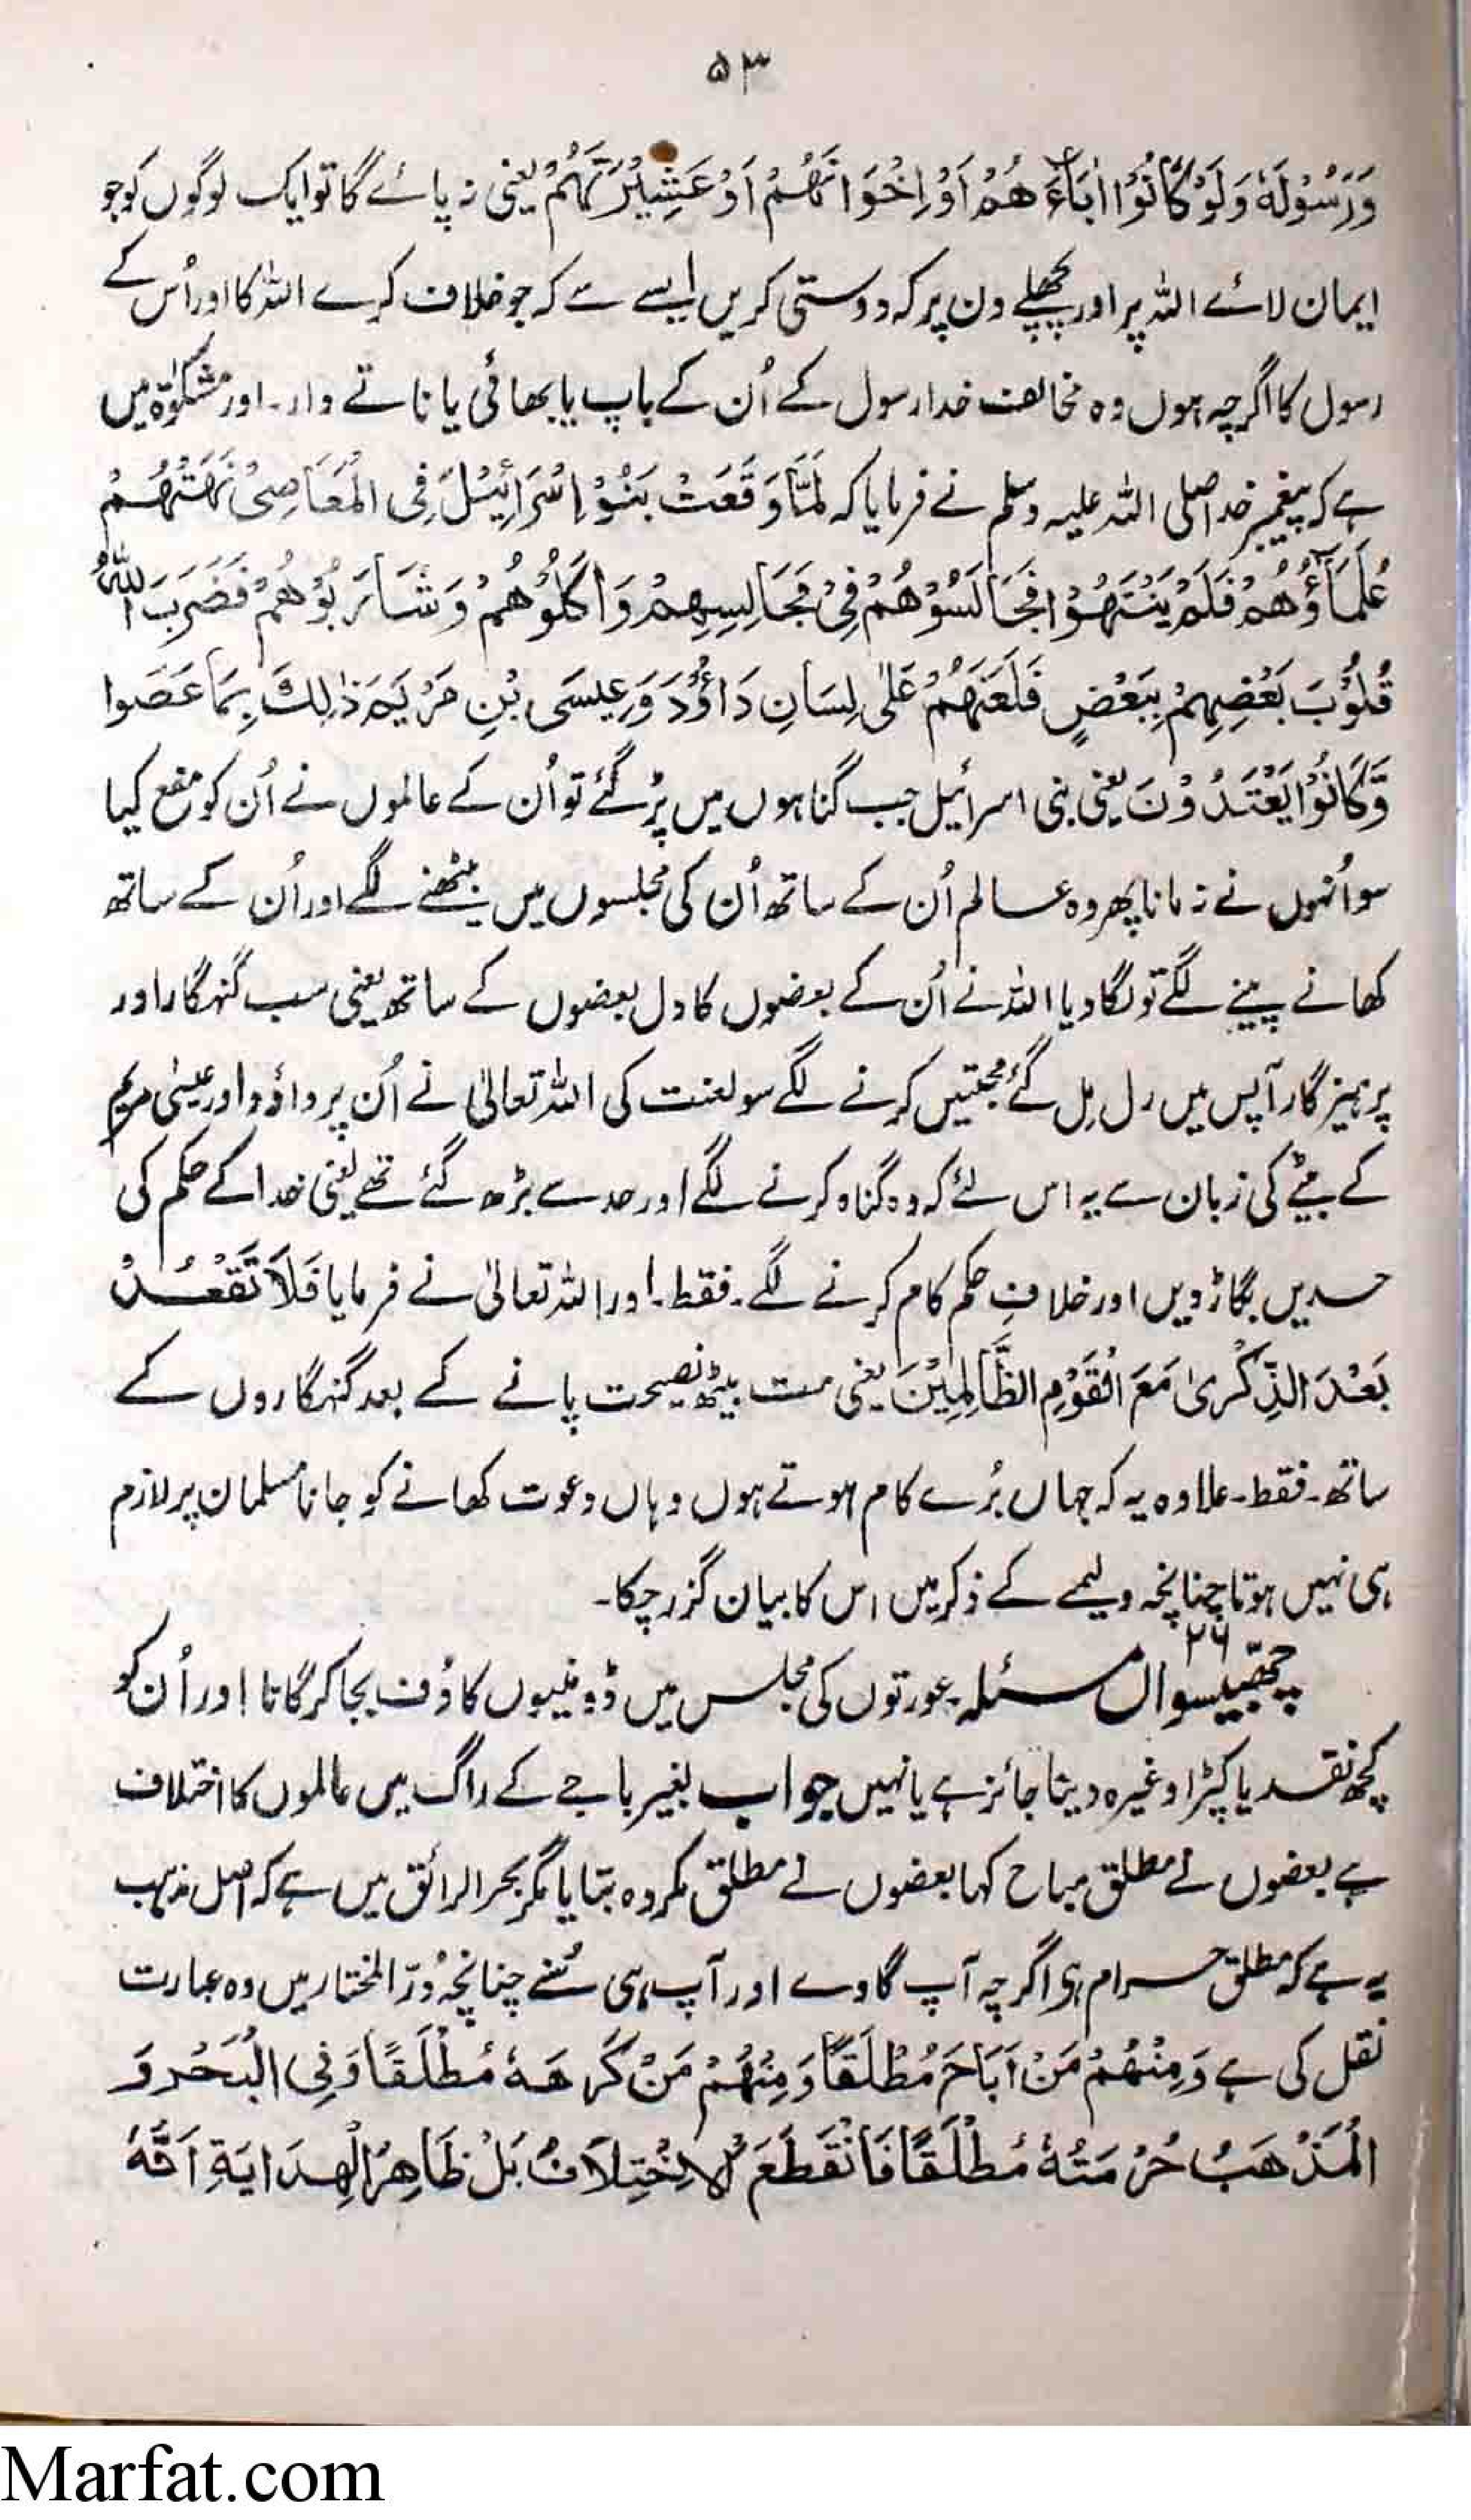 ۵۳
وَرَسُوْلَهٗ وَلَوْ كَانُوْا اٰبَآءَ هُمْ اَوْ اِخْوَانَهُمْ اَوْ عَشِيْرَتَهُمْ یعنی نہ پائے گا تو ایک لوگوں کو جو
ایمان لائے اللہ پر اور پچھلے دن پر کہ دوستی کریں ایسے سے کہ جو خلاف کرے اللہ کا اور اُس کے
رسول کا اگرچہ ہوں وہ مخالف خدا رسول کے اُن کے باپ یا بھائی یا ناتے دار۔ اور مشکوٰۃ میں
ہے کہ پیغمبر خدا صلی اللہ علیہ وسلم نے فرمایا کہ لَمَّا وَقَعَتْ بَنُوْ اِسْرَائِيْلَ فِی الْمَعَاصِیْ نَهَتْهُمْ
عُلَمَآؤُهُمْ فَلَمْ يَنْتَهُوْا فَجَالَسُوْهُمْ فِیْ مَجَالِسِهِمْ وَاٰكَلُوْهُمْ وَشَارَبُوْهُمْ فَضَرَبَ اللّٰهُ
قُلُوْبَ بَعْضِهِمْ بِبَعْضٍ فَلَعَنَهُمْ عَلٰى لِسَانِ دَاوٗدَ وَعِيسَى بْنِ مَرْيَمَ ذٰلِكَ بِمَا عَصَوا
وَّكَانُوْا يَعْتَدُوْنَ یعنی بنی اسرائیل جب گناہوں میں پڑ گئے تو اُن کے عالموں نے اُن کو منع کیا
سو اُنہوں نے نہ مانا پھر وہ عالم اُن کے ساتھ اُن کی مجلسوں میں بیٹھنے لگے اور اُن کے ساتھ
کھانے پینے لگے تو لگا دیا اللہ نے اُن کے بعضوں کا دل بعضوں کے ساتھ یعنی سب گنہگار اور
پرہیز گار آپس میں رل مِل گئے محبتیں کرنے لگے سو لعنت کی اللہ تعالیٰ نے اُن پر داؤد اور عیسٰی مریم
کے بیٹے کی زبان سے یہ اس لئے کہ وہ گناہ کرنے لگے اور حد سے بڑھ گئے تھے یعنی خدا کے حکم کی
حدیں بگاڑ دیں اور خلافِ حکم کام کرنے لگے۔ فقط۔ اور اللہ تعالیٰ نے فرمایا فَلَا تَقْعُدْ
بَعْدَ الذِّكْرىٰ مَعَ الْقَوْمِ الظَّالِمِيْنَ یعنی مت بیٹھ نصیحت پانے کے بعد گنہگاروں کے
ساتھ۔ فقط۔ علاوہ یہ کہ جہاں بُرے کام ہوتے ہوں وہاں دعوت کھانے کو جانا مسلمان پر لازم
ہی نہیں ہوتا چنانچہ ولیمے کے ذکر میں اس کا بیان گزر چکا۔
۲۶
چھبیسواں مسئلہ۔ عورتوں کی مجلس میں ڈومنیوں کا دُف بجا کر گانا اور اُن کو
کچھ نقد یا کپڑا وغیرہ دینا جائز ہے یا نہیں جواب بغیر باجے کے راگ میں عالموں کا اختلاف
ہے بعضوں نے مطلق مباح کہا بعضوں نے مطلق مکروہ بتایا مگر بحر الرائق میں ہے کہ اصل مذہب
یہ ہے کہ مطلق حرام ہی اگرچہ آپ گاوے اور آپ ہی سُنے چنانچہ دُرّ المختار میں وہ عبارت
نقل کی ہے وَمِنْهُمْ مَنْ اَبَاحَ مُطْلَقًا وَمِنْهُمْ مَنْ كَرِهَهٗ مُطْلَقًا وَفِی الْبَحْرِ وَ
الْمَذْهَبُ حُرْمَتُهٗ مُطْلَقًا فَانْقَطَعَ الْاِخْتِلَافُ بَلْ ظَاهِرُ الْهِدَايَةِ اَنَّهٗ
Marfat.com